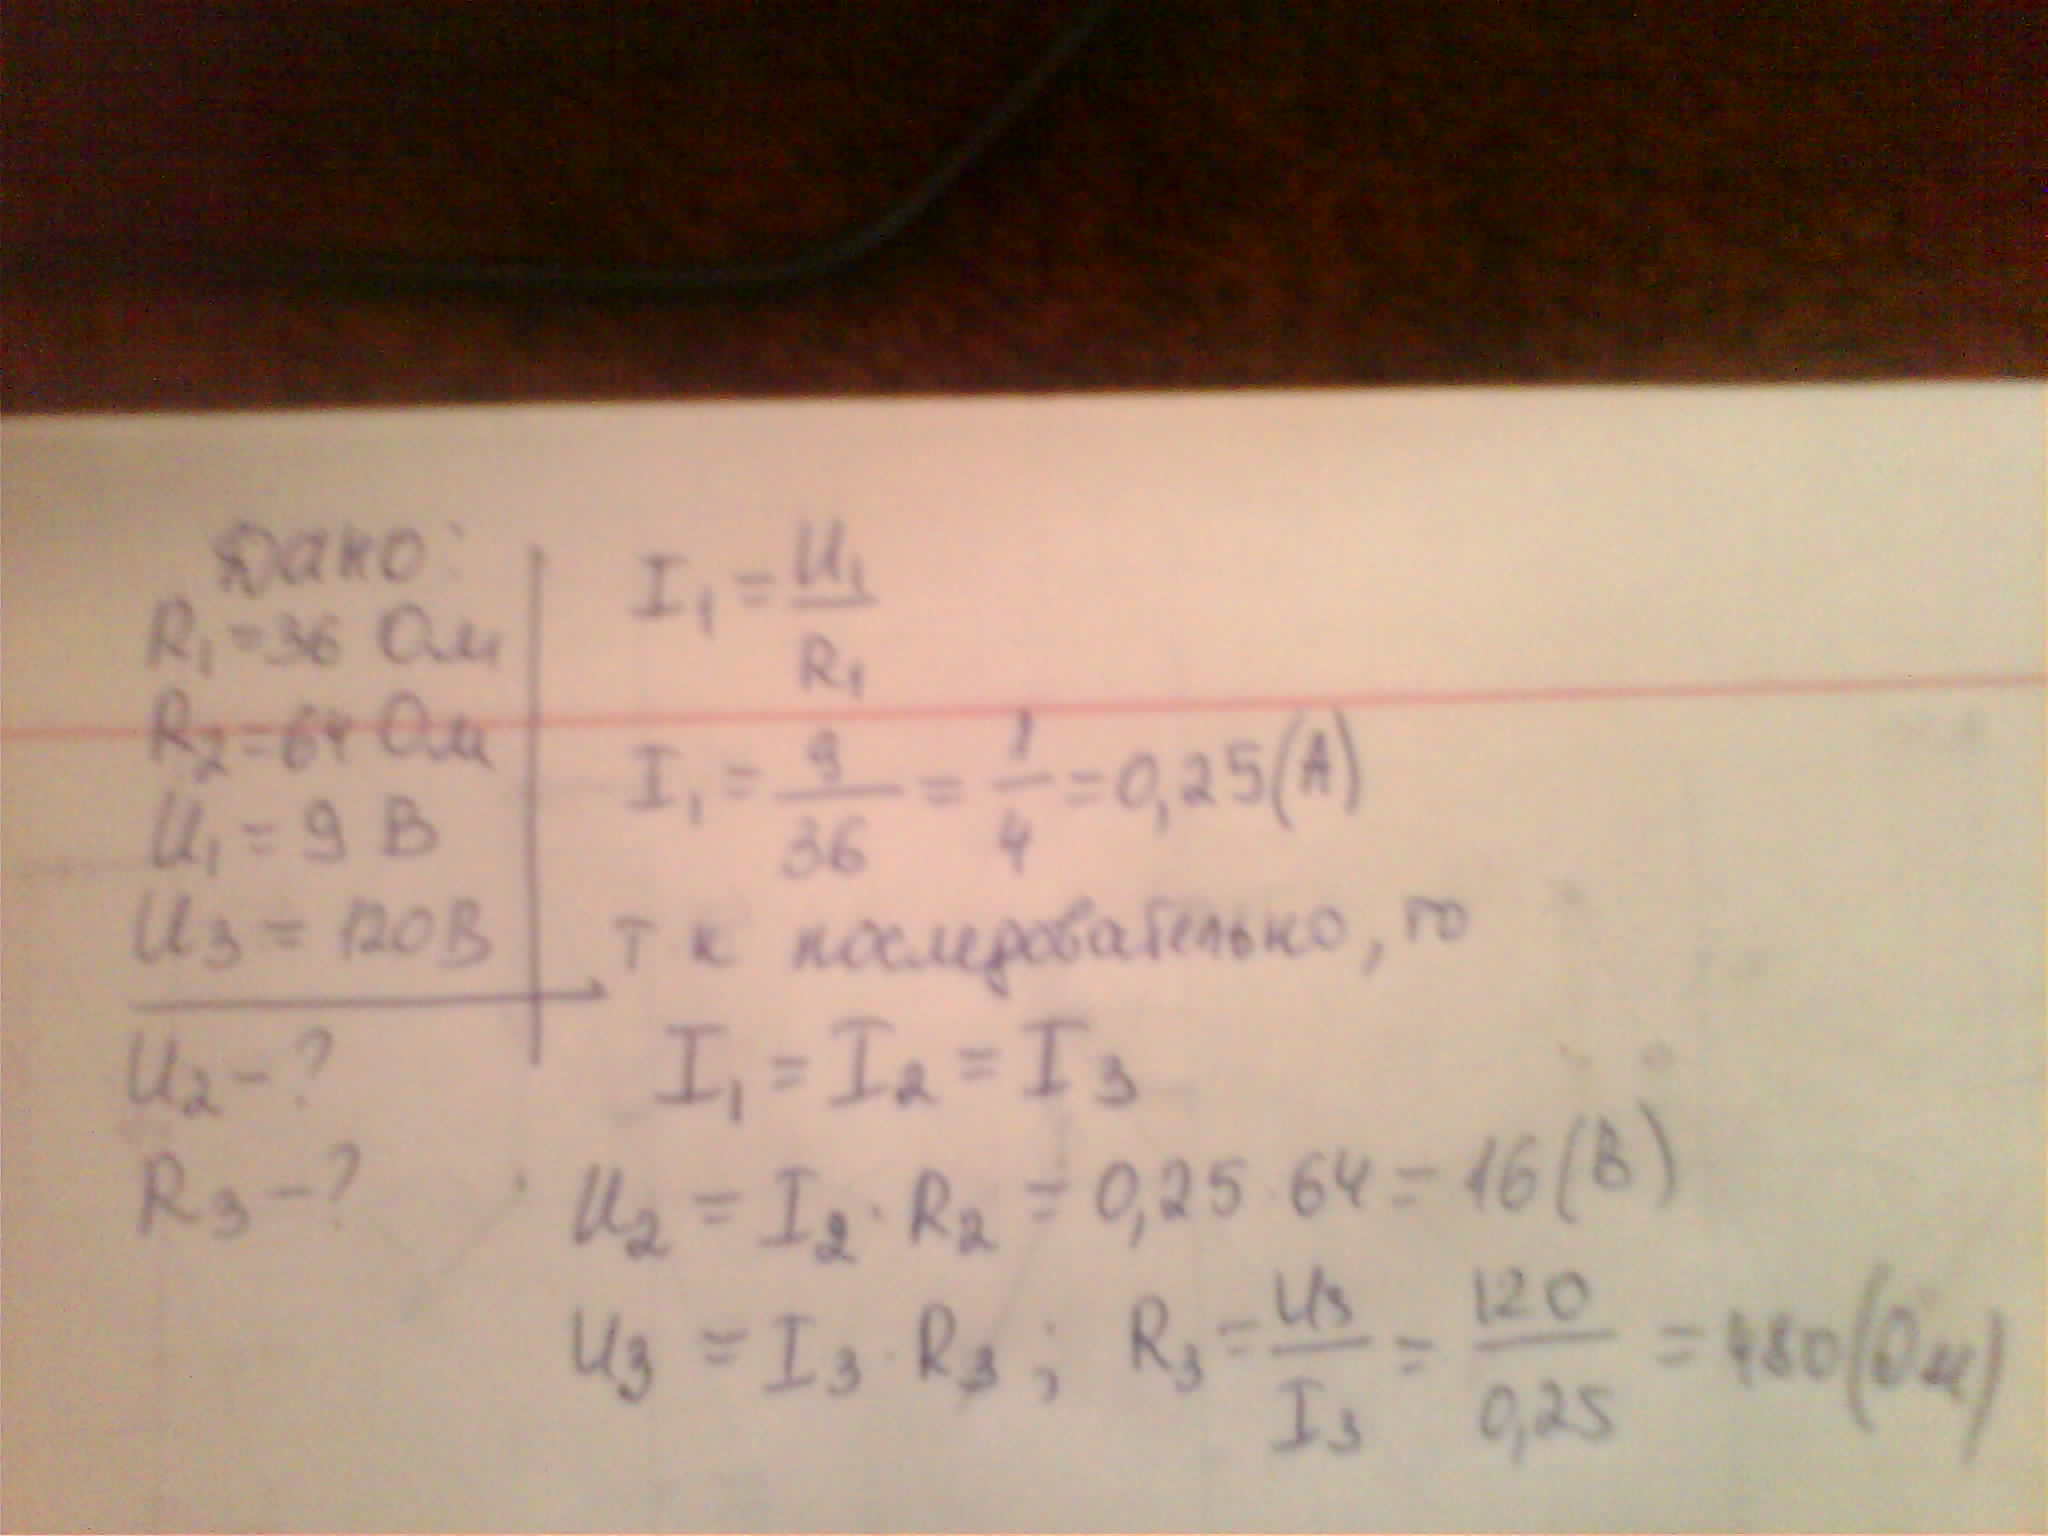 Дано:
R₁=36 Ом
R₂=64 Ом
U₁=9 В
U₃=120В
U₂-?
R₃-?
I₁=U₁/R₁
I₁=9/36=1/4=0,25(А)
т к последовательно, то
I₁=I₂=I₃
U₂=I₂·R₂=0,25·64=16(В)
U₃=I₃·R₃; R₃=U₃/I₃=120/0,25=480(Ом)